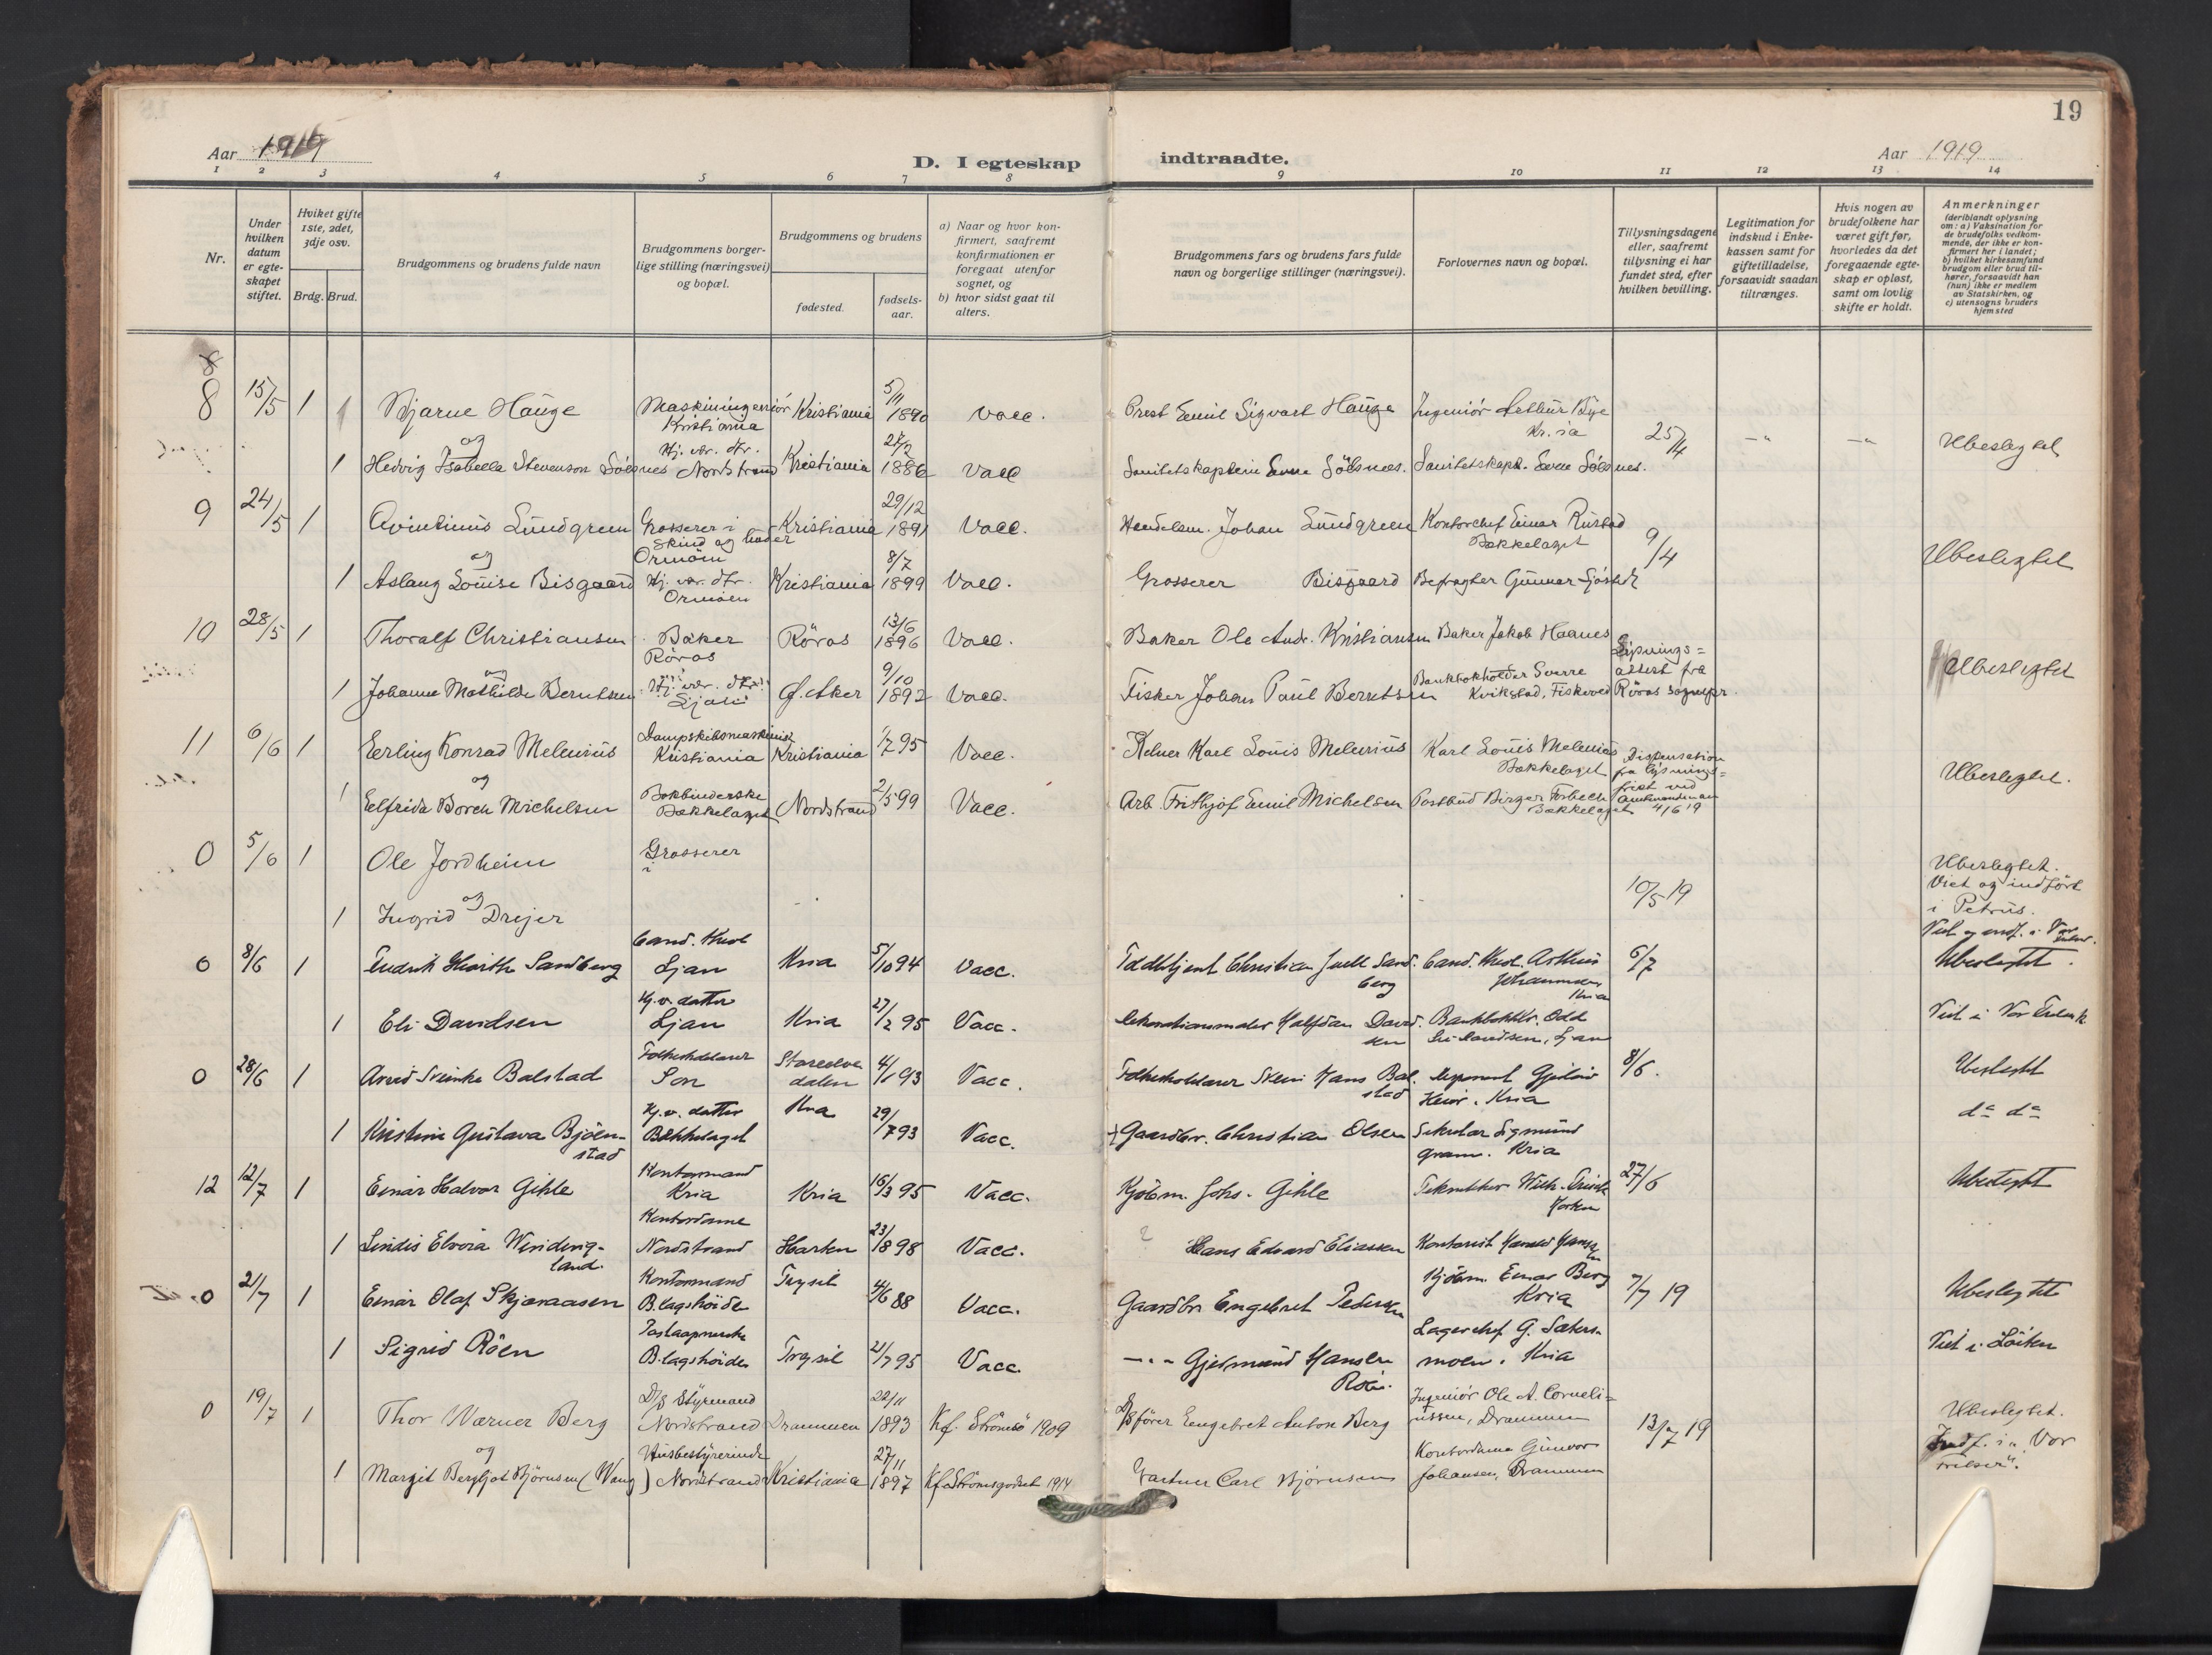 19
Aar 1919
D. I egteskap indtraadte.
Aar 1919
1 2 3 4 5 6 7 8 9 10 11 12 13 14
Nr.
Under hvilken datum er egteskapet stiftet.
Hviket gifte 1ste, 2det, 3dje osv.
Brdg. Brud.
Brudgommens og brudens fulde navn
Brudgommens borgerlige stilling (næringsvei) og bopæl.
Brudgommens og brudens
fødested.
fødselsaar.
a) Naar og hvor konfirmert, saafremt konfirmationen er foregaat utenfor sognet, og
b) hvor sidst gaat til alters.
Brudgommens fars og brudens fars fulde navn og borgerlige stillinger (næringsvei).
Forlovernes navn og bopæl.
Tillysningsdagene eller, saafremt tillysning ei har fundet sted, efter hvilken bevilling.
Legitimation for indskud i Enkekassen samt for giftetilladelse, forsaavidt saadan tiltrænges.
Hvis nogen av brudefolkene har været gift før, hvorledes da det foregaaende egteskap er opløst, samt om lovlig skifte er holdt.
Anmerkninger
(deriblandt oplysning om: a) Vaksination for de brudefolks vedkommende, der ikke er konfirmert her i landet; b) hvilket kirkesamfund brudgom eller brud tilhører, forsaavidt han (hun) ikke er medlem av Statskirken, og c) utensogns bruders hjemsted
8 15/5 1 Bjarne Hauge Maskiningeniör Kristiania Kristiania 5/11 1890 Vacc. Prest Emil Sigvart Hauge Ingeniör Arthur Bye Kr.ia 25/4 -"- -"- Ubeslegtet
og
1 Hedvig Isabella Stevenson Sölsnes Hj. vær. dtr. Nordstrand Kristiania 1886 Vacc Sanitetskaptein Sölsnes. Sanitetskapt. Sölsnes.
9 24/5 1 Avintinus Lundgreen Grosserer i skind og huder Ormöen Kristiania 29/12 1891 Vacc. Handelsm. Johan Lundgreen Kontorchef Einar Rustad Bækkelaget 9/4 Ubeslegtet
og
1 Aslaug Louise Bisgaard Hj. vær. dtr. Ormöen Kristiania 8/7 1899 Vacc. Grosserer Bisgaard Befragter Gunnar Sjöstedt
10 28/5 1 Thoralf Christiansen Baker Röros Röros 13/6 1896 Vacc. Baker Ole Andr. Kristiansen Baker Jakob Haanes Lysningsattest fra Röros sognepr. Ubeslegtet
og
1 Johanne Mathilde Berntsen Hj. vær. dtr. Ljan Ø. Aker 9/10 1892 Vacc. Fisker Johan Paul Berntsen Bankbokholder Sverre Kvikstad, Fiskevol
11 6/6 1 Erling Konrad Melenius Dampskibsmaskinist Kristiania Kristiania 1/7 95 Vacc. Kelner Karl Louis Melenius Karl Louis Melenius Bækkelaget Dispensation fra lysningsfrist ved 4/6 19 Ubeslegtet.
og
1 Elfrida Borch Michelsen Bokbinderske Bækkelaget Nordstrand 2/5 99 Vacc. Arb. Frithjof Emil Michelsen Postbud Birger Torbech Bækkelaget
0 5/6 1 Ole Jordheim Grosserer i 10/5 19 Ubeslegtet. Viet og indfört i Petrus.
og
1 Ingrid Drejer
0 8/6 1 Fredrik Hiorth Sandberg Cand. theol Ljan Kria 5/10 94 Vacc. Toldbetjent Christian Juell Sandberg Cand. theol. Arthur Johannesen Kria 6/7 Ubeslegtet.
1 Eli Davidsen Hj. v. datter Ljan Kria 27/2 95 Vacc. Dekorationsmaler Halfdan Davidsen Bankbokh. Odd Ljan Viet i Vor Frelsers k.
0 28/6 1 Arvid Sveinke Balstad Folkeskolelærer Son Storelvedalen 4/1 93 Vacc. Folkeskolelærer Svein Hans Balstad Kria 8/6. Ubeslegtet
1 Kristine Gustava Björnstad Hj. v. datter Bækkelaget Kria 29/7 93 Vacc. Gaardbr. Christian Olsen Sekretær Sigmund Gram. Kria do do
12 12/7 1 Einar Halvor Gihle Kontormand Kria Kria 16/3 95 Vacc. Kjöbm. Johs. Gihle 27/6 Ubeslegtet
1 Lindis Elvora Windingland. Kontordame Nordstrand 23/1 98 Vacc. Hans Edvard Eliassen Kontorist Harald Hansen
0 21/7 1 Einar Olaf Skjæraasen Kontormand B.lagshöida Trysil 4/6 88 Vacc. Gaardbr Engebret Pedersen Kjöbm. Einar Berg Kria 7/7 19 Ubeslegtet
1 Sigrid Röen B.lagshöiden Trysil 21/7 95 Vacc. -"- Gjermund Hansen Röen. Lagerchef G. Sætersmoen. Kria Viet i Löiten
0 19/7 1 Thor Werner Berg D/S Styrmand Nordstrand Drammen 22/11 1893 Kf. Strömsö 1909 D/S förer Engebret Anton Berg Ingeniör Ole A. Cornelíussen, Drammen 13/7 19 Ubeslegtet. Indf. i "Vor Frelser".
og
1 Margit Bergljot Björnsen (Wang) Husbestyrerinde Nordstrand Kristiania 27/11 1897 Kf. Strömsgodset 1914 Gartner Carl Björnsen Kontordame Gunvor Johansen, Drammen